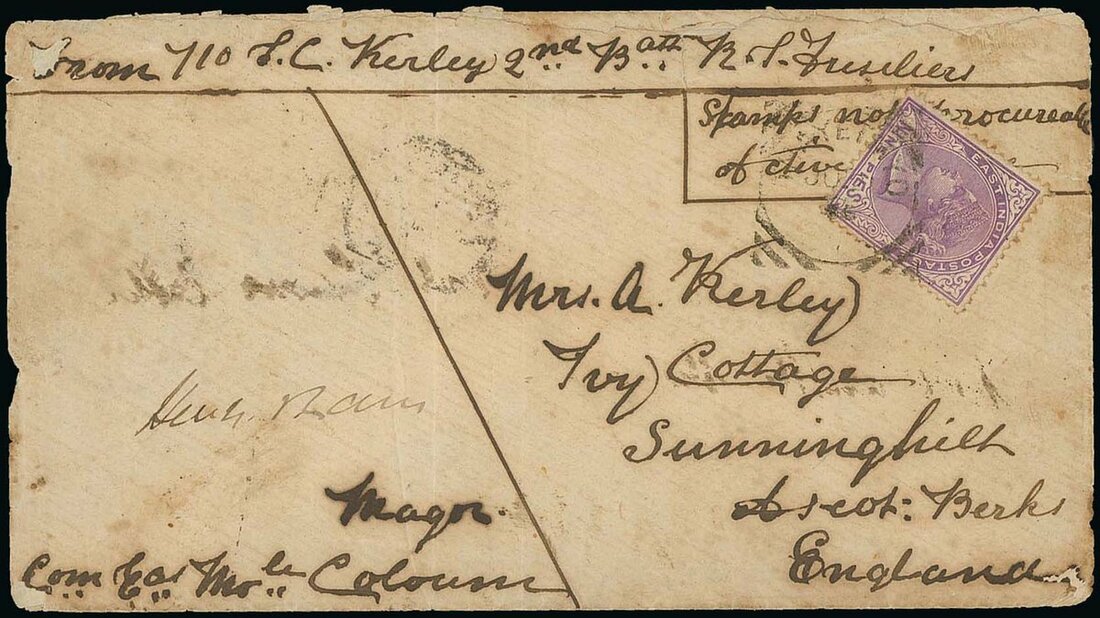 From 710 S. C. Kerley 2nd Batt R. S. Fusiliers
Stamps not procureable
Active
EAST INDIA POSTAGE
NINE PIES
Mrs. A. Kerley
Ivy Cottage
Sunninghill
Ascot: Berks
England
Magor
Com Eas Mo le Coloum